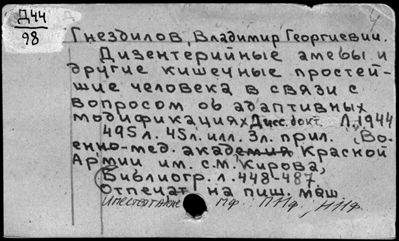 Д44
98
Гнездилов, Владимир Георгиевич.
Дизентерийные амебы и
другие кишечные простей-
шие человека в связи с
вопросом об адаптивных
модификациях Дисс. докт. Л., 1944
495 л. 45 л. илл. 3 л. прил. (Во-
енно-мед. академия Красной
Армии им. С.М. Кирова,
Библиогр. л. 448-487
Отпечат. на пиш. маш.